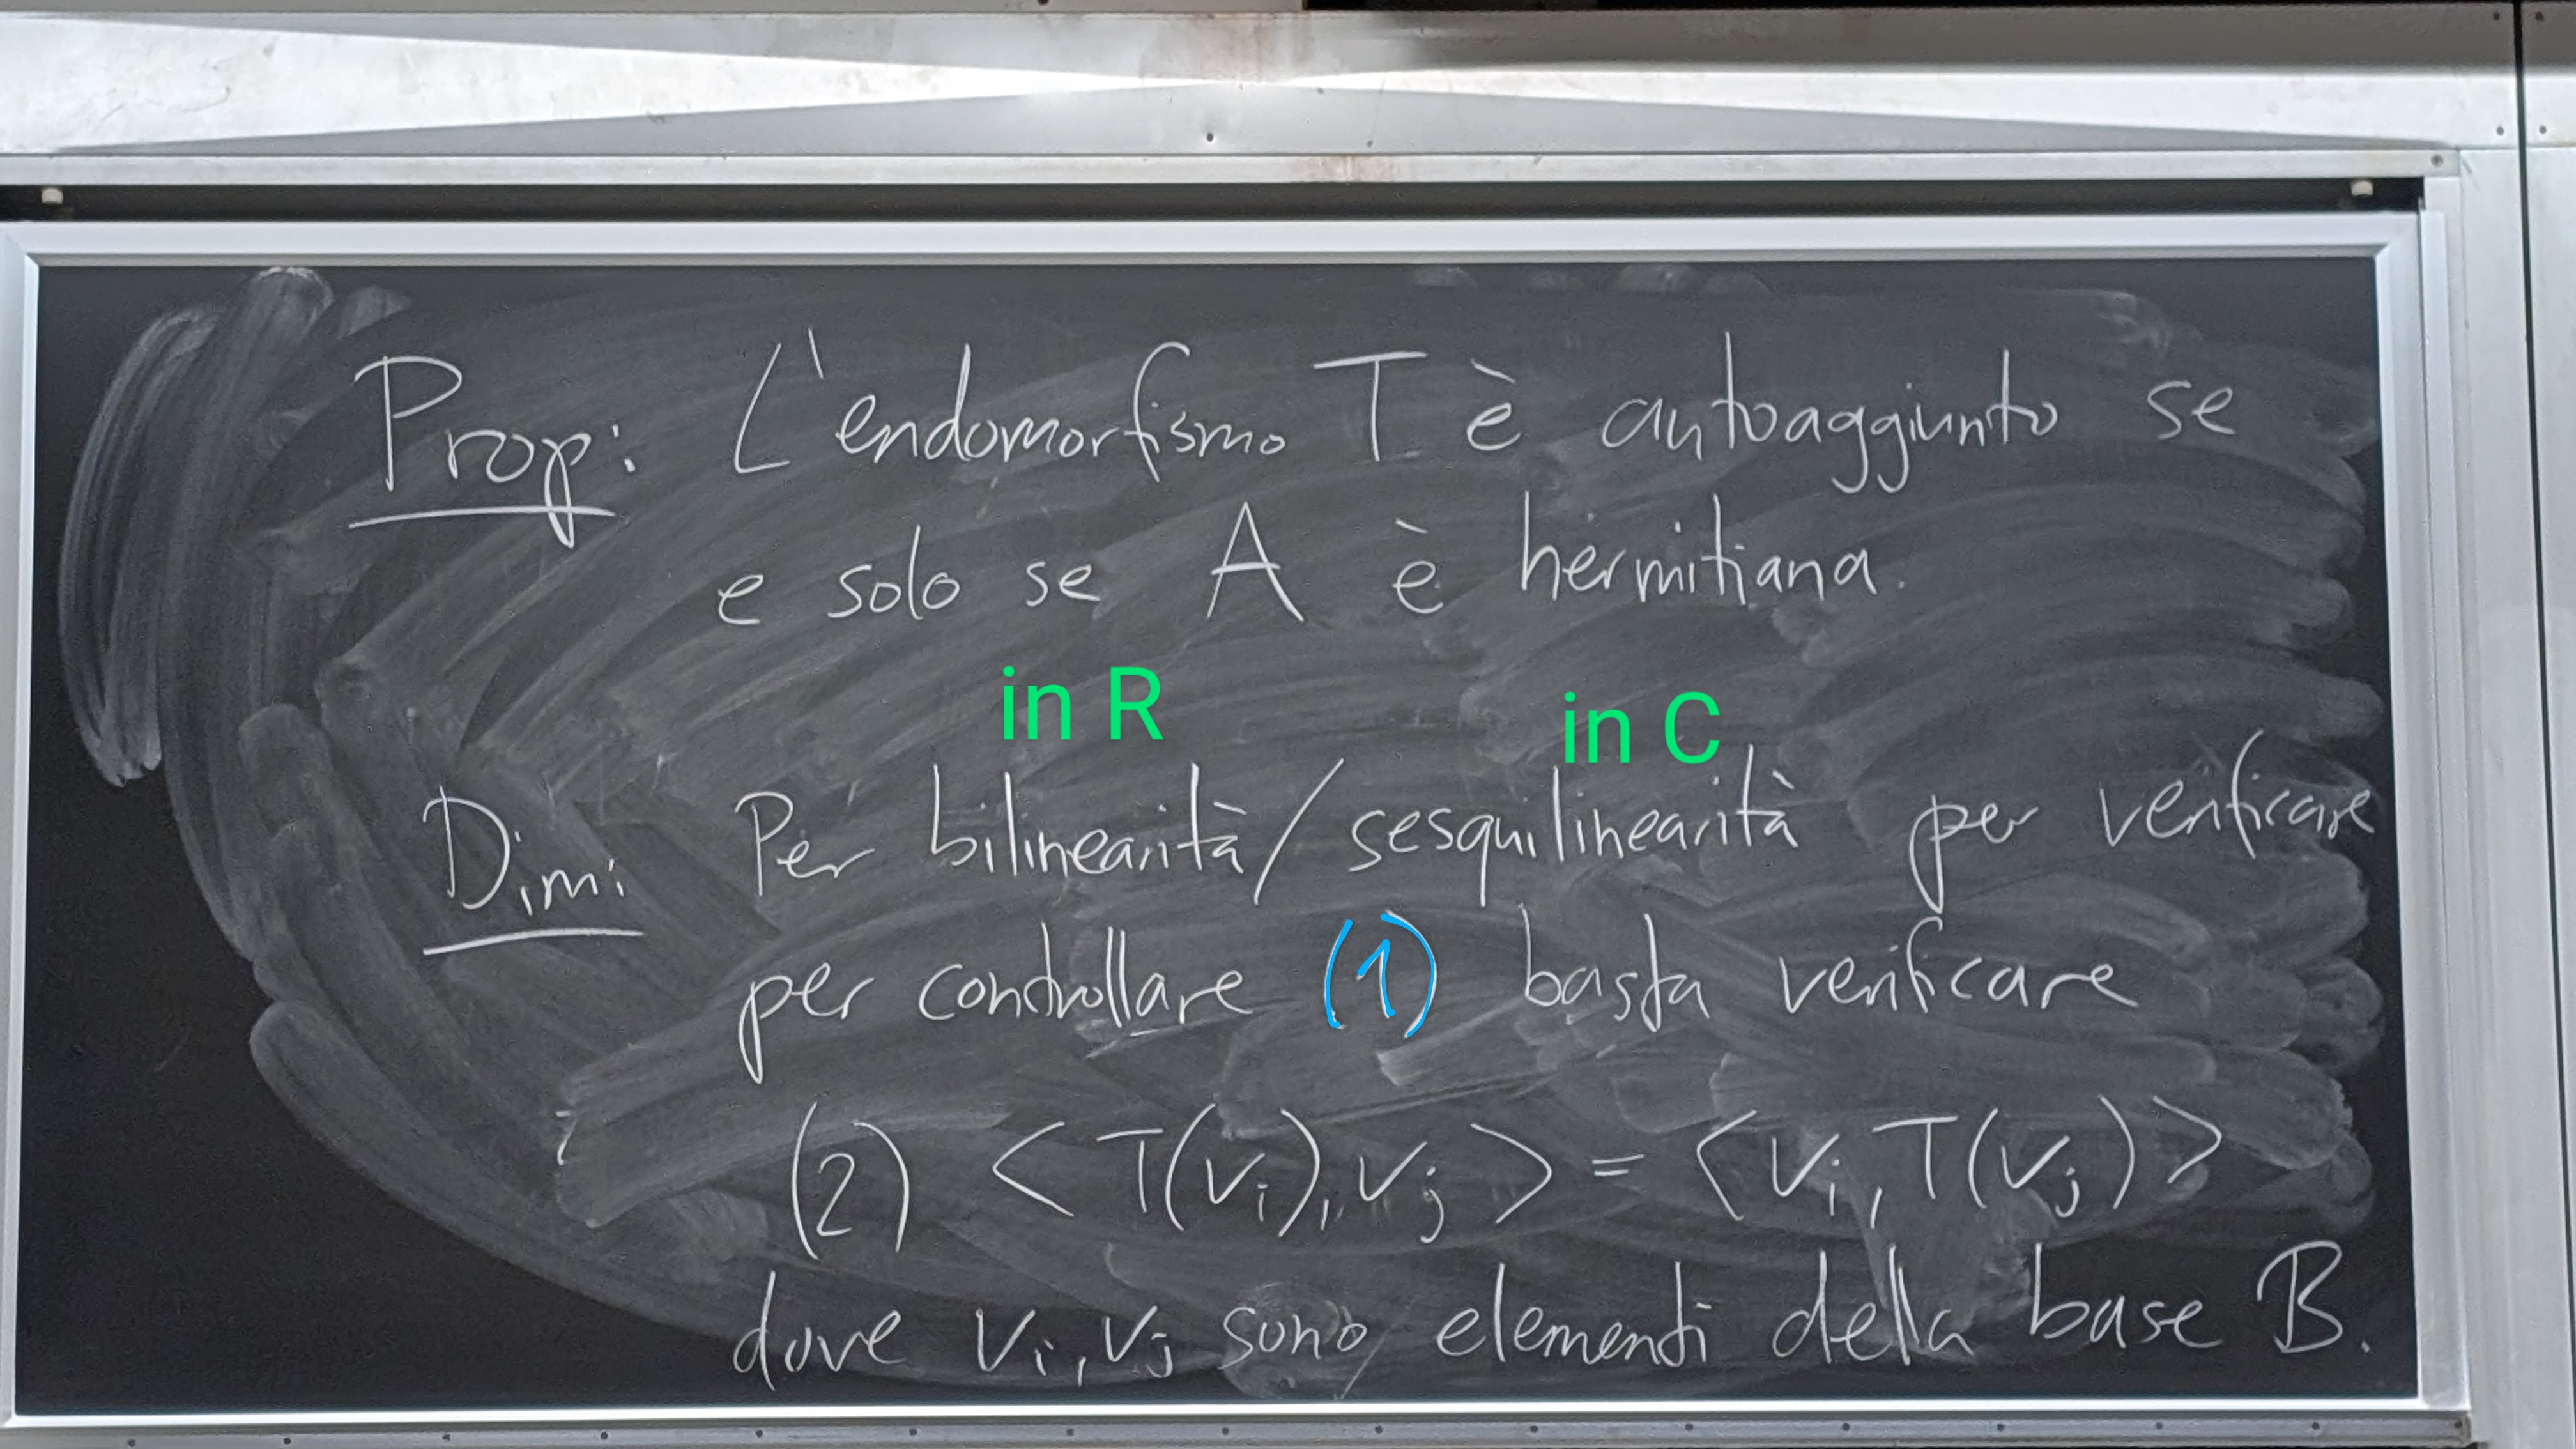 Prop: L'endomorfismo T è autoaggiunto se
e solo se A è hermitiana.
in R in C
Dim: Per bilinearità/sesquilinearità per verificare
per controllare (1) basta verificare
(2) <T(vi), vj> = <vi, T(vj)>
dove vi, vj sono elementi della base B.